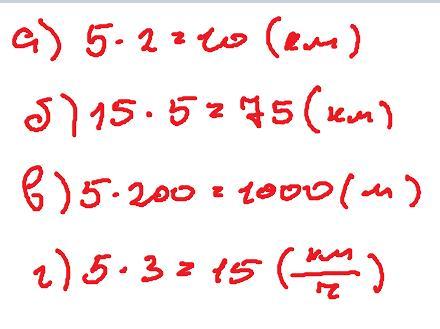 а) 5 · 2 = 10 (км)
б) 15 · 5 = 75 (км)
в) 5 · 200 = 1000 (м)
г) 5 · 3 = 15 (км/ч)